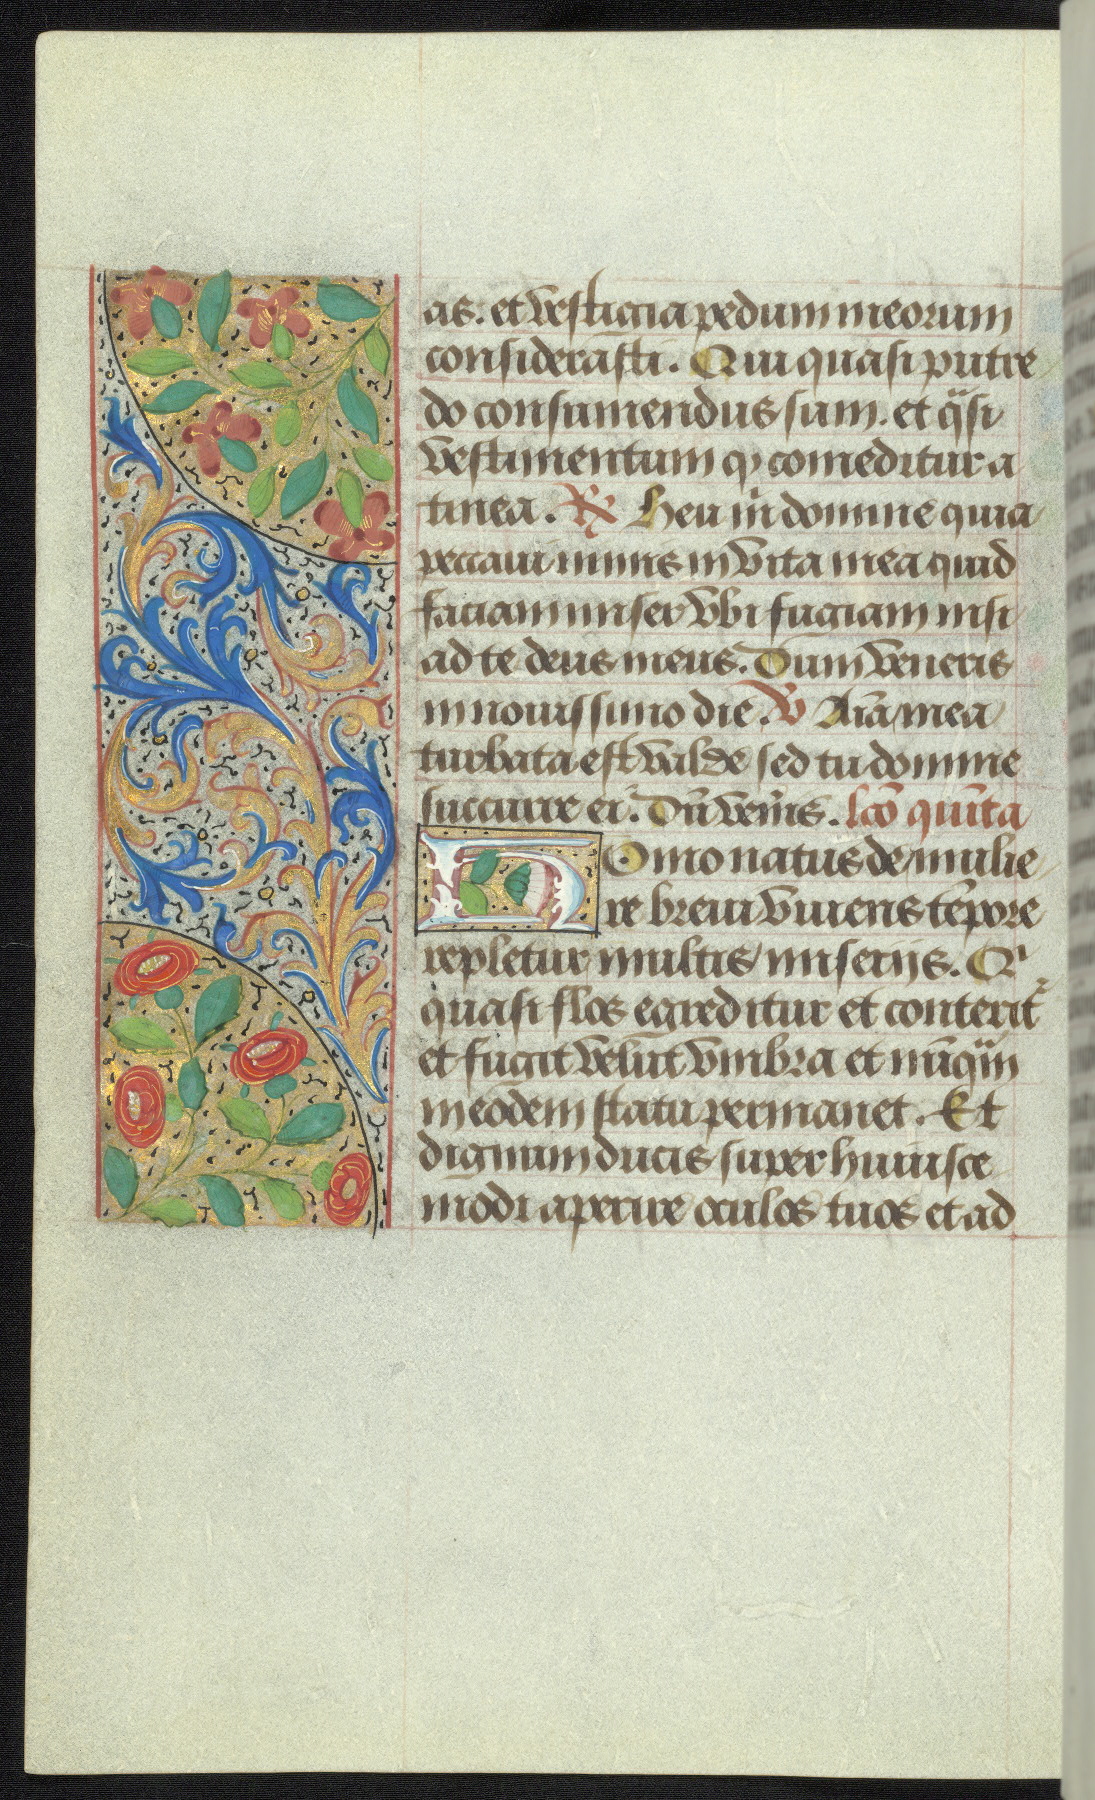 as. et vestigia pedum meorum
considerasti. Qui quasi putre
do consumendus sum. et q̃si
vestimentum qd̕ comeditur a
tinea. R̸ Heu m̄ domine quia
peccaui nimis in vita mea quid
faciam miser vbi fugiam nisi
ad te deus meus. Dum veneris
in nouissimo die. V Aīa mea
turbata est valde sed tu domine
succurre ei. Dū venīs. lcō quīta
HOmo natus de mulie
re breui viuens tēpore
repletur multis miserijs. Qͥ
quasi flos egreditur et conterit᷑
et fugit velut vmbra et nūq̃m
in eodem statu permanet. Et
dignum ducis super huiusce
modi aperire oculos tuos et ad